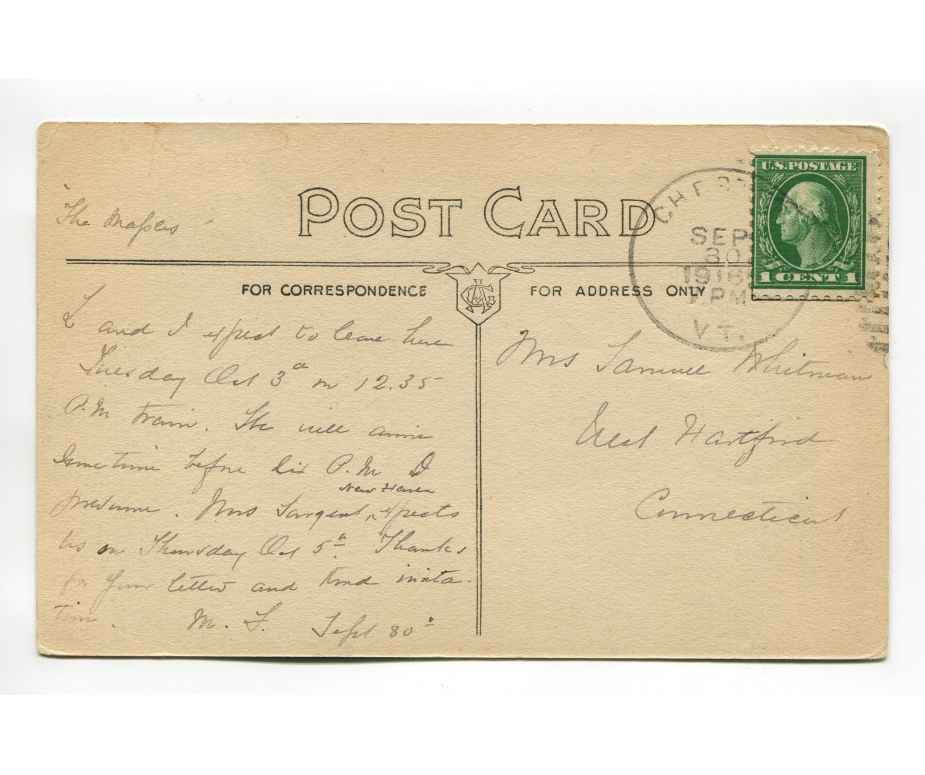 POST CARD
"The Maples"
FOR CORRESPONDENCE
FOR ADDRESS ONLY
U.S. POSTAGE
1 CENT 1
SEP
30
1916
PM
VT.
L and I expect to leave here
Tuesday Oct 3d on 12.35
P.M train. We will arrive
sometime before six P.M I
New Haven
presume. Mrs Sargent, expects
us on Thursday Oct 5th. Thanks
for your letter and kind invita-
tion. M. L. Sept 30th
Mrs Samuel Whitman
West Hartford
Connecticut